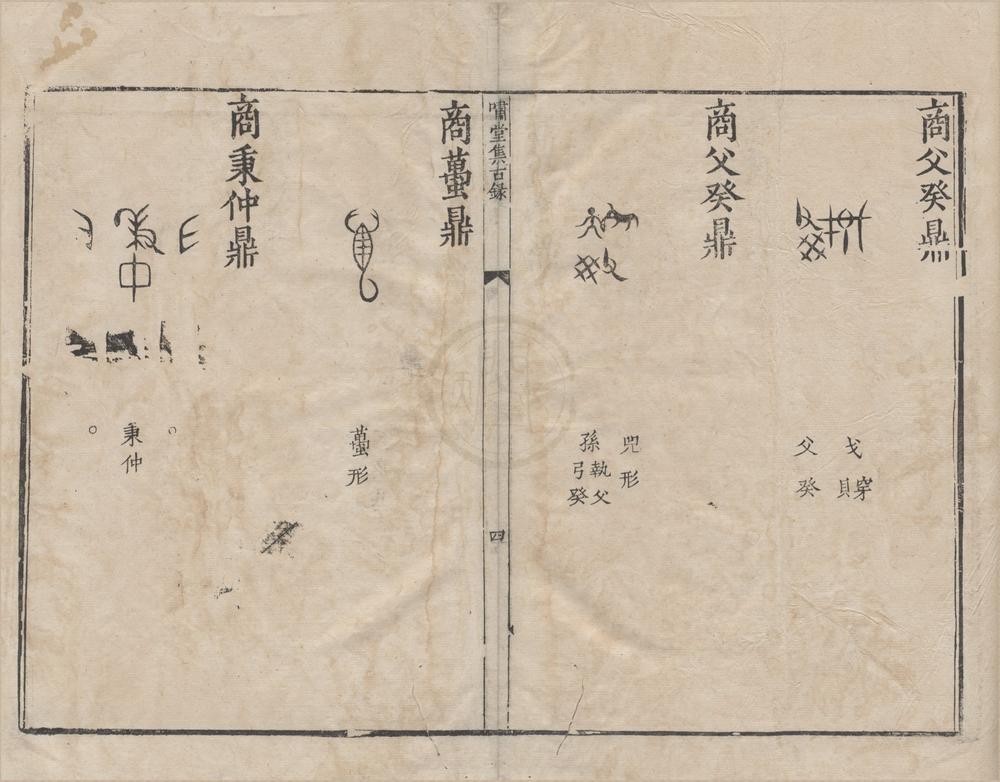 商父癸鼎
戈
穿貝
父癸
商父癸鼎
兕形
孫執弓
父癸
嘯堂集古錄
四
商蠆鼎
蠆形
商秉仲鼎
秉仲